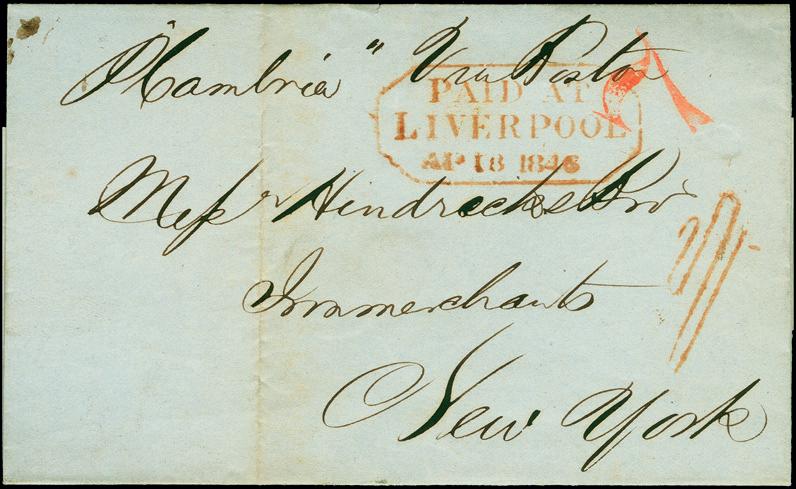 "Cambria" Via Boston
PAID AT
LIVERPOOL
AP 18 1846
Messrs Hendricks & Bro
Ironmerchants
New York